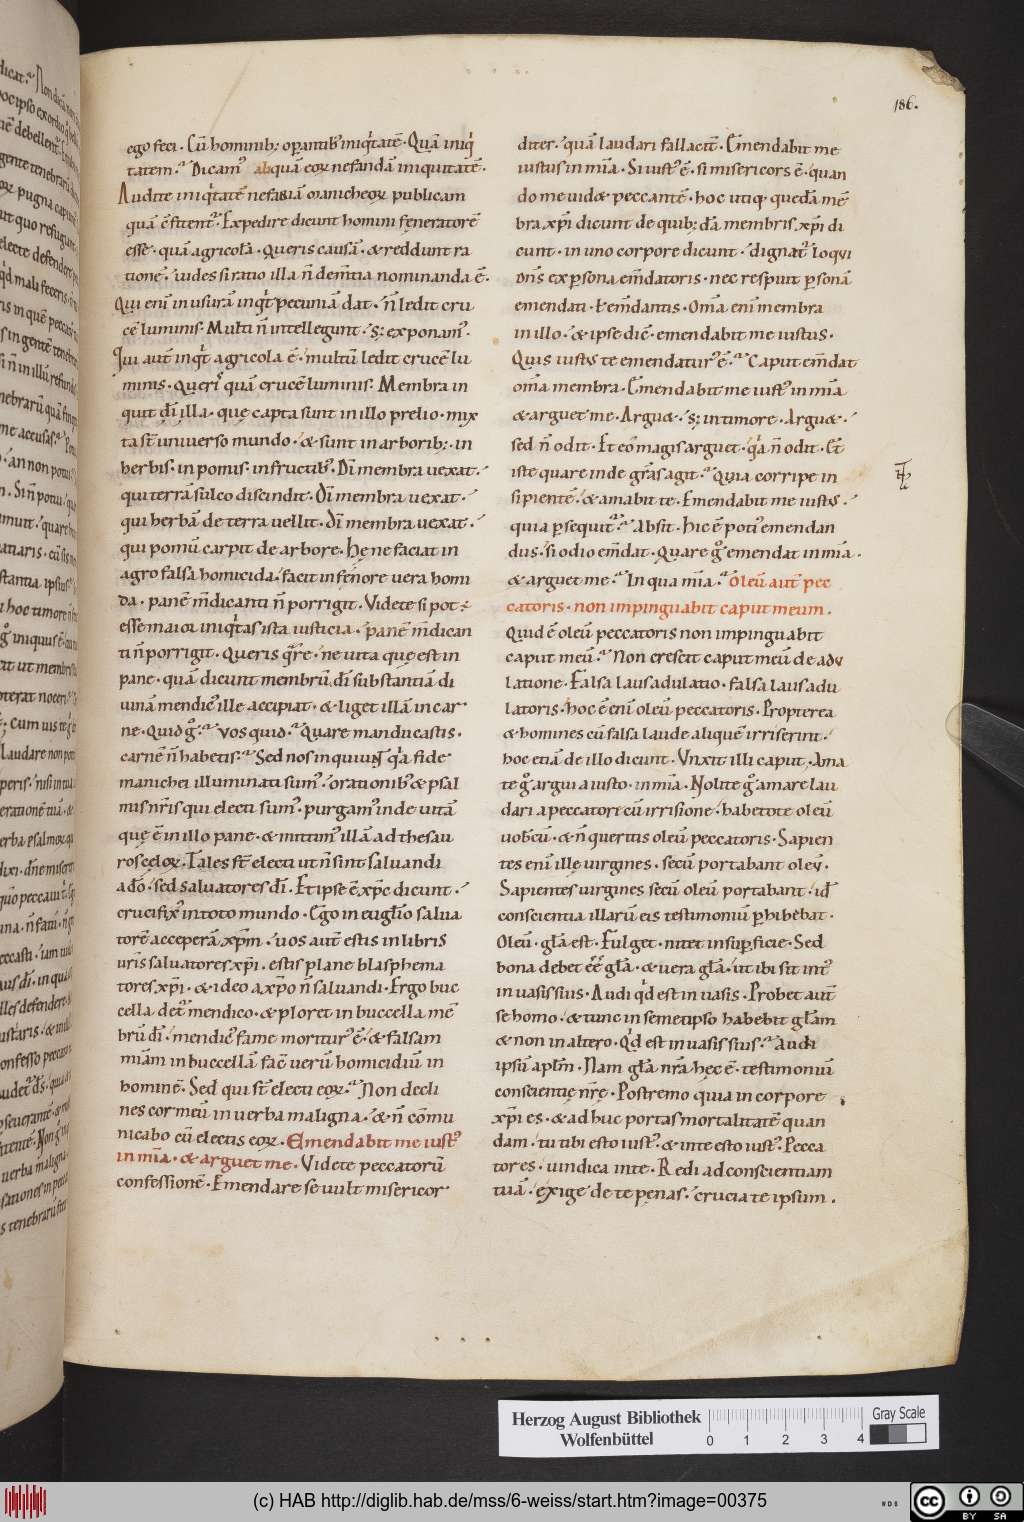 186.
ego feci · Cū hominib; opantib' iniq̇tatē · Quā iniq̇
tatem ·' Dicam' aliquā eoꝝ nefandā iniquitatē ·
Audite iniq̇tatē nefariā manicheoꝝ publicam
quā c̄fitent' · Expedire dicunt homini feneratorē
esse · quā agricolā · Queris causā · & reddunt ra
tionē · uides si ratio illa n̄ dem̄tia nominanda ē ·
Qui eni in usurā inq̇t pecuniā dat · n̄ ledit cru
cē luminis · Multi n̄ intellegunt · s; exponam' ·
Qui aut̄ inq̇t agricola ē · multū ledit crucē lu
minis · Querit quā crucē luminis · Membra in
quit dī illa · que capta sunt in illo prelio · mix
ta st̄ uniuerso mundo · & sunt in arborib; · in
herbis · in pomis · in fructib' · Dī membra uexat ·
qui terrā sulco discindit · Dī membra uexat ·
qui herbā de terra uellit · Dī membra uexat ·
qui pomū carpit de arbore · Hec ne faciat in
agro falsa homicida · facit in fenore uera homi
da · panē m̄dicanti n̄ porrigit · Videte si pot ē
esse maior iniq̇tas ista iusticia · panē m̄dican
ti n̄ porrigit · Queris q̄re · ne uita que est in
pane · quā dicunt membrū dī substantiā di
uinā mendic' ille accipiat · & liget illā in car
ne · Quid ḡ · uos quid · Quare manducastis ·
carnē n̄ habetis · Sed nos inquiunt q̇a fide
manichei illuminati sum' · orationib' & psal
mis nr̄is qui electi sum' · purgam' inde uitā
que ē in illo pane · & mittim' illā ad thesau
ros celoꝝ · Tales st̄ electi ut n̄ sint saluandi
a dō · sed saluatores dī · Et ipse ē xpc dicunt ·
crucifix' in toto mundo · Ego in euglīo salua
torē acceperā xpm · uos aut̄ estis in libris
urīs saluatores xpi · estis plane blasphema
tores xpi · & ideo a xpo n̄ saluandi · Ergo buc
cella det' mendico · & ploret in buccella mē
brū dī · mendic' fame moritur' ē · & falsam
miam in buccellā facē uerū homicidiū in
hominē · Sed qui st̄ electi eoꝝ · Non decli
nes cor meū in uerba maligna · & n̄ cōmu
nicabo cū electis eoꝝ · Emendabit me iust'
in mīa · & arguet me · Videte peccatorū
confessionē · Emendare se uult misericor
diter · quā laudari fallacit̄ · Emendabit me
iustus in mīa · Si iust' ē · si misericors ē · quan
do me uidet peccantē · hoc utiq · quedā mē
bra xpi dicunt de quib; dā membris xpi di
cunt · in uno corpore dicunt · dignat' loqui
dns ex psona em̄datoris · nec respuit psonā
emendati · ł em̄dantis · Om̄a eni membra
in illo · & ipse dic̄ · emendabit me iustus ·
Quis iustus te emendatur' ē · Caput em̄dat
om̄a membra · Emendabit me iust' in mīa
& arguet me · Arguet · s; in timore · Arguet ·
sed n̄ odit · Et eō magis arguet · q̇a n̄ odit · Et
iste quare inde grās agit · Quia corripe in
sipientē · & amabit te · Emendabit me iustus ·
quia psequit' · Absit · Hic ē poti' emendan
dus · si odio em̄dat · Quare ḡ emendat in mīa ·
& arguet me · In qua mīa · Oleū aut̄ pec
catoris · non impinguabit caput meum ·
Quid ē oleū peccatoris non impinguabit
caput meū · Non crescit caput meū de adu
latione · Falsa laus adulatio · falsa laus adu
latoris · hoc ē eni oleū peccatoris · Propterea
& homines cū falsa laude aliquē irriserint ·
hoc etiā de illo dicunt · Vnxit illi caput · Ama
te ḡ argui a iusto · in mīa · Nolite ḡ amare lau
dari a peccatore cū irrisione · habetote oleū
uobcū · & n̄ queritis oleū peccatoris · Sapien
tes eni ille uirgines · secū portabant oleū ·
Sapientes uirgines secū oleū portabant · id̄
conscientia illarū eis testimoniū phibebat ·
Oleū · glā est · Fulget · nitet in supficie · Sed
bona debet eē glā · & uera glā · ut ibi sit int'
in uasis suis · Audi q̇d est in uasis · Probet aut̄
se homo · & tunc in semetipso habebit glām
& non in altero · Q̇d est in uasis suis · Audi
ipsū aplm · Nam glā nrā hec ē · testimoniū
conscientie nrē · Postremo quia in corpore
xpi es · & adhuc portas mortalitatē quan
dam · tu tibi esto iust' · & in te esto iust' · Pecca
tores · uindica in te · Redi ad conscientiam
tuā · exige de te penas · crucia te ipsum ·
Herzog August Bibliothek
Wolfenbüttel
Gray Scale
0 1 2 3 4
(c) HAB http://diglib.hab.de/mss/6-weiss/start.htm?image=00375
cc BY SA